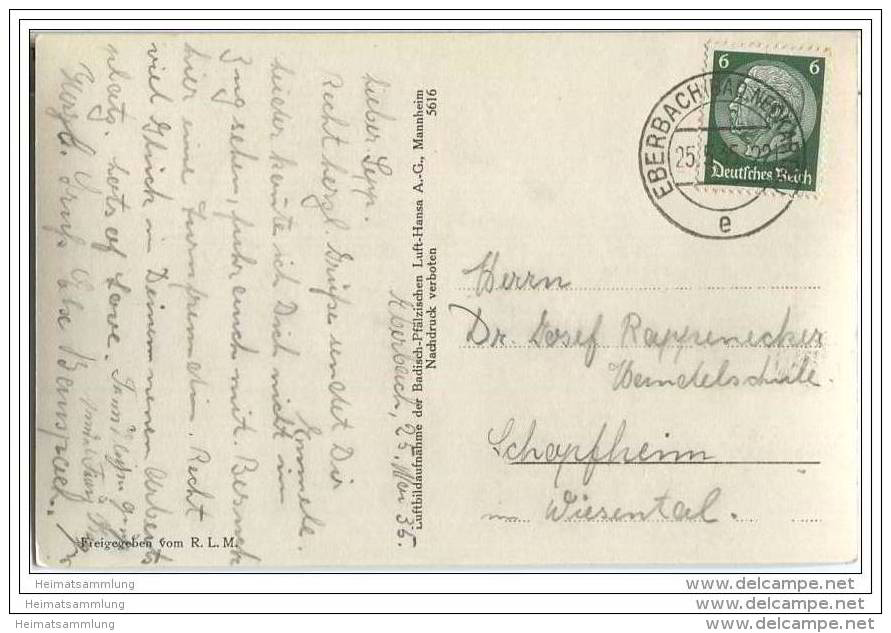 Eberbach, 25. Mai 36.
Lieber Sepp.
Recht herzl. Grüße sendet Dir
Emmele.
Leider konnte ich Dich nicht im
Zug sehen, fuhr auch mit. Besuch
hier eine Turnfreundin. Recht
viel Glück in Deinem neuen Arbeits
platz. lots of Love.
Herzl. Gruß Else
Freigegeben vom R. L. M.
Luftbildaufnahme der Badisch-Pfälzischen Luft-Hansa A.-G., Mannheim
Nachdruck verboten 5616
6 6
Deutsches Reich
EBERBACH (BAD. NECKAR
25
e
Herrn
Dr. Josef Rappenecker
Handelsschule.
Schopfheim
Wiesental.
Heimatsammlung
Heimatsammlung
Heimatsammlung
www.delcampe.net
www.delcampe.net
www.delcampe.net